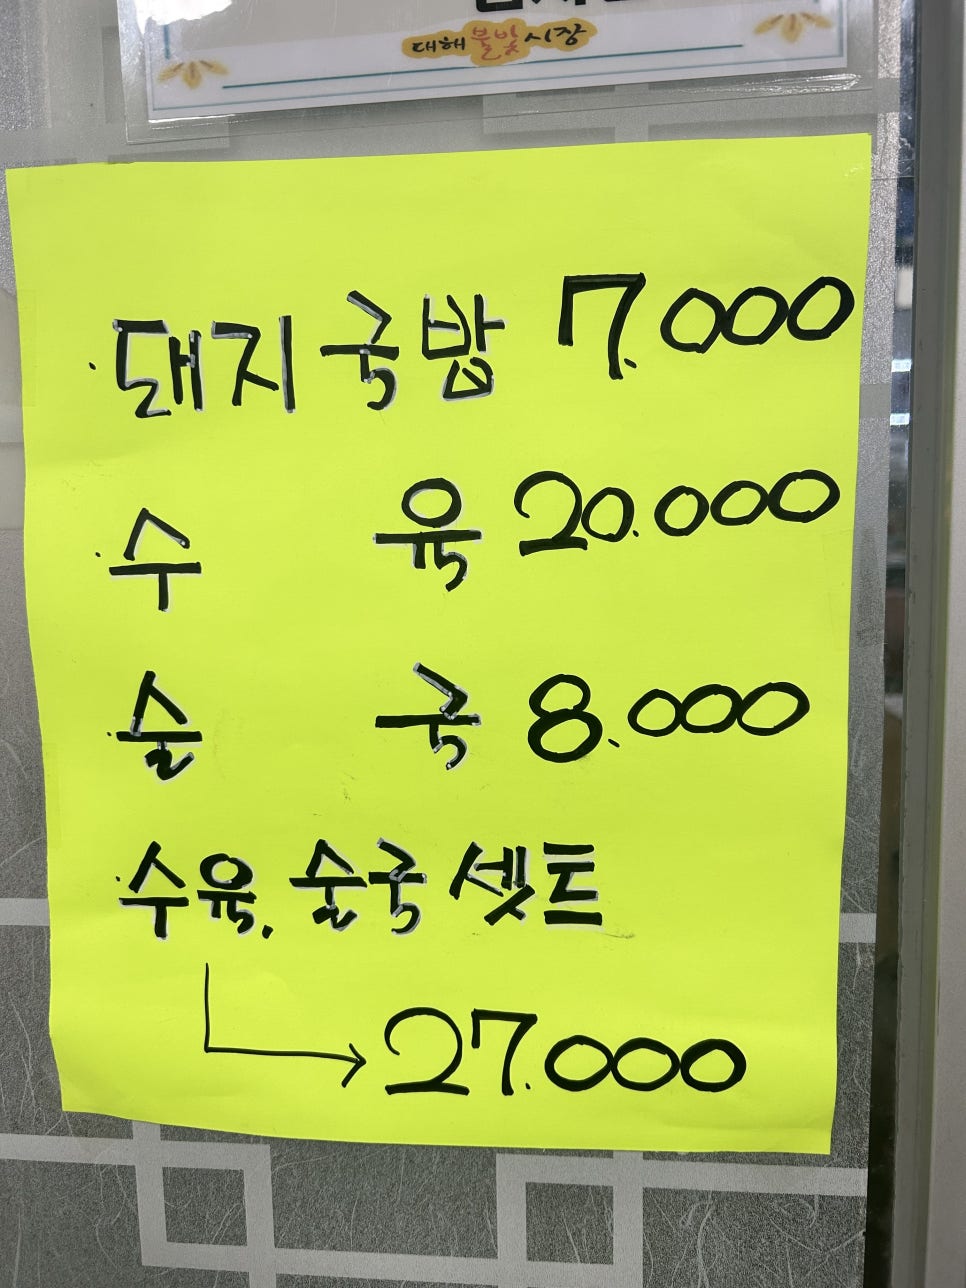 대해불빛시장
· 돼지국밥 7.000
· 수 육 20.000
· 술 국 8.000
· 수육. 술국 셋트
27.000